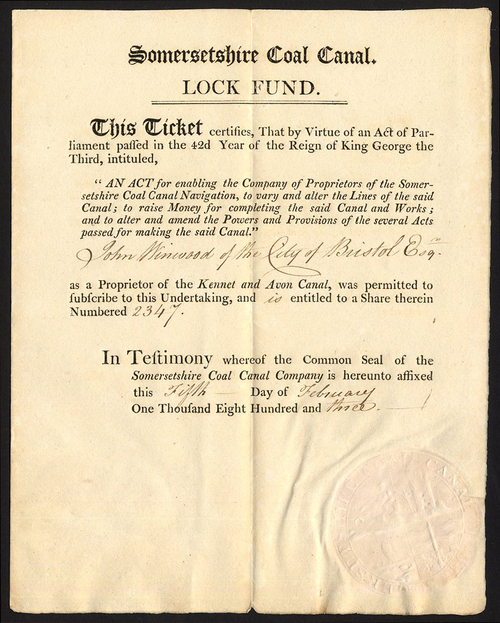 Somersetshire Coal Canal.
LOCK FUND.
This Ticket certifies, That by Virtue of an Act of Par-
liament paſſed in the 42d Year of the Reign of King George the
Third, intituled,
“ AN ACT for enabling the Company of Proprietors of the Somer-
setshire Coal Canal Navigation, to vary and alter the Lines of the said
Canal; to raise Money for completing the said Canal and Works;
and to alter and amend the Powers and Provisions of the several Acts
passed for making the said Canal.”
John Winwood of the City of Bristol Esqr.
as a Proprietor of the Kennet and Avon Canal, was permitted to
ſubſcribe to this Undertaking, and is entitled to a Share therein
Numbered 2347.
In Teſtimony whereof the Common Seal of the
Somersetshire Coal Canal Company is hereunto affixed
this Fifth — Day of February
One Thouſand Eight Hundred and three. —